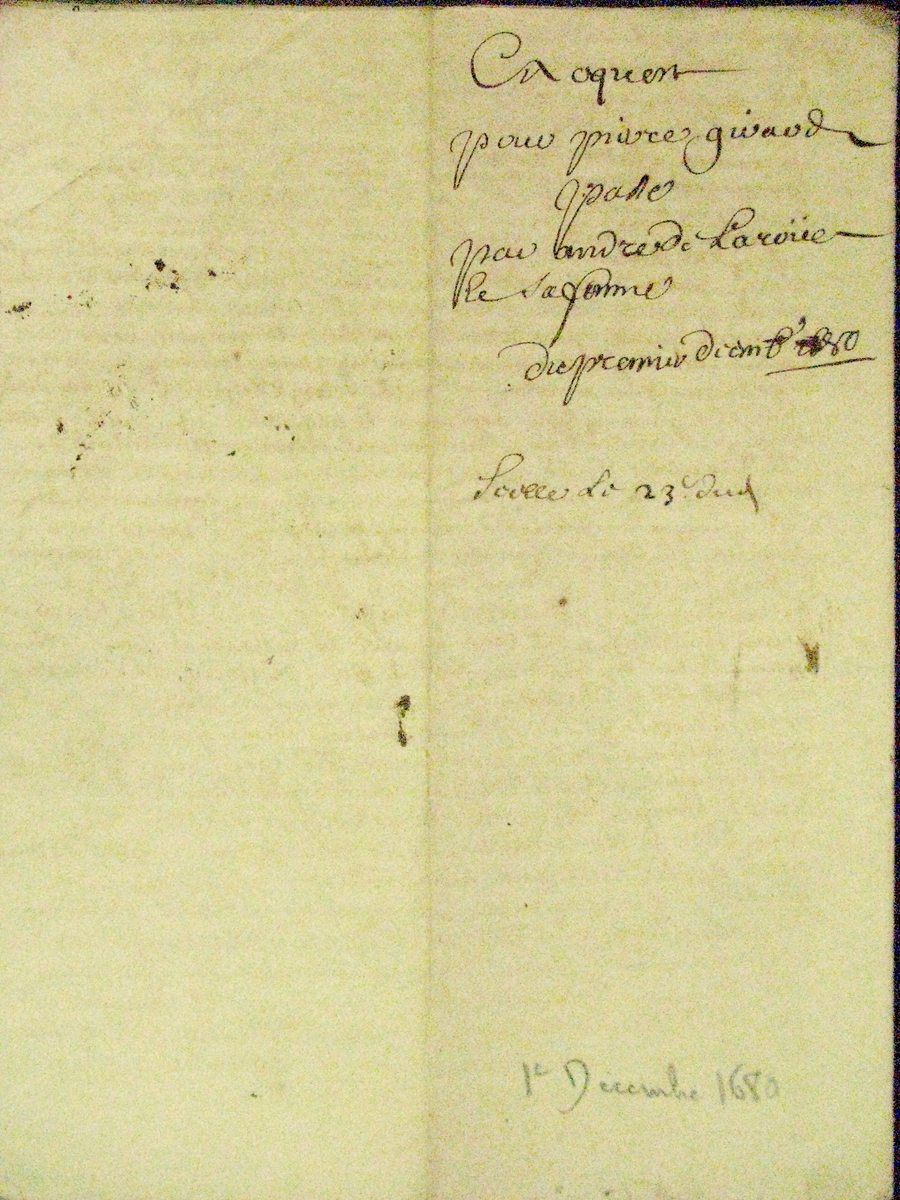 pour pierre giraud
par andre de Laroüe
& sa femme
du premier decemb^r 1680
Scelle Le 23^e dud
1^er Decembre 1680